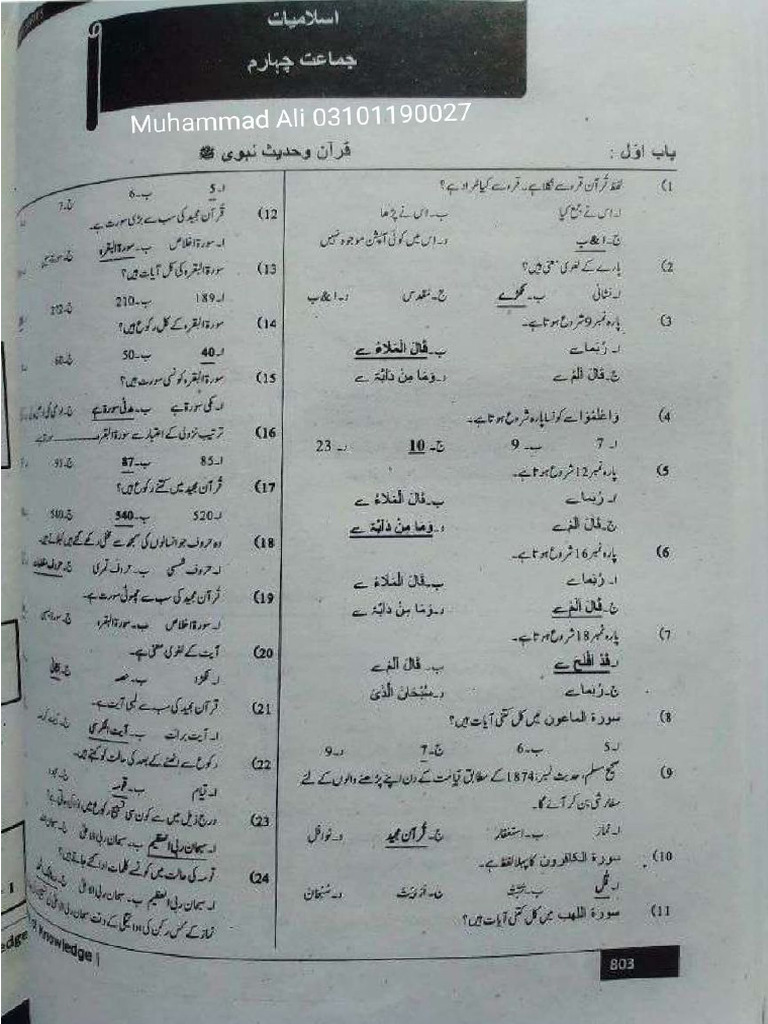 اسلامیات
جماعت چہارم
Muhammad Ali 03101190027
باب اوّل : قرآن و حدیث نبوی ﷺ
1) لفظ قرآن قرء سے نکلا ہے۔ قرء سے کیا مراد ہے؟
ا۔ اس نے جمع کیا ب۔ اس نے پڑھا
ج۔ ا & ب د۔ اس میں کوئی آپشن موجود نہیں
2) پارے کے لغوی معنی ہیں؟
ا۔ نشانی ب۔ ٹکڑے ج۔ مقدس د۔ ا & ب
3) پارہ نمبر 9 شروع ہوتا ہے۔
ا۔ رُبَمَا سے ب۔ قَالَ الْمَلَاءُ سے
ج۔ قَالَ اَلَمْ سے د۔ وَمَا مِنْ دَآبَّۃٍ سے
4) وَاعْلَمُوْا سے کونسا پارہ شروع ہوتا ہے۔
ا۔ 7 ب۔ 9 ج۔ 10 د۔ 23
5) پارہ نمبر 12 شروع ہوتا ہے۔
ا۔ رُبَمَا سے ب۔ قَالَ الْمَلَاءُ سے
ج۔ قَالَ اَلَمْ سے د۔ وَمَا مِنْ دَآبَّۃٍ سے
6) پارہ نمبر 16 شروع ہوتا ہے۔
ا۔ رُبَمَا سے ب۔ قَالَ الْمَلَاءُ سے
ج۔ قَالَ اَلَمْ سے د۔ وَمَا مِنْ دَآبَّۃٍ سے
7) پارہ نمبر 18 شروع ہوتا ہے۔
ا۔ قَدْ اَفْلَحَ سے ب۔ قَالَ اَلَمْ سے
ج۔ رُبَمَا سے د۔ سُبْحَانَ الَّذِیْ
8) سورۃ الماعون میں کل کتنی آیات ہیں؟
ا۔ 5 ب۔ 6 ج۔ 7 د۔ 9
9) صحیح مسلم، حدیث نمبر: 1874 کے مطابق قیامت کے دن اپنے پڑھنے والوں کے لئے
سفارشی بن کر آئے گا۔
ا۔ نماز ب۔ استغفار ج۔ قرآن مجید د۔ نوافل
10) سورۃ الکافرون کا پہلا لفظ ہے۔
ا۔ قُلْ
11) سورۃ اللھب میں کل کتنی آیات ہیں؟
ا۔ 5 ب۔ 6 ج۔ 7
12) قرآن مجید کی سب سے بڑی سورت ہے۔
ا۔ سورۃ اخلاص ب۔ سورۃ البقرہ
13) سورۃ البقرہ کی کل آیات ہیں؟
ا۔ 189 ب۔ 210 ج۔ 212
14) سورۃ البقرہ کے کل رکوع ہیں؟
ا۔ 40 ب۔ 50 ج۔ 60
15) سورۃ البقرہ کونسی سورت ہے؟
ا۔ مکی سورۃ ہے ب۔ مدنی سورۃ ہے
16) ترتیب نزولی کے اعتبار سے سورۃ البقرہ
ا۔ 85 ب۔ 87 ج۔ 91
17) قرآن مجید میں کتنے رکوع ہیں؟
ا۔ 520 ب۔ 540
18) وہ حروف جو انسانوں کی سمجھ سے مخفی رکھے گئے ہیں کہلاتے ہیں۔
ا۔ حروف شمسی ب۔ حروف قمری ج۔ حروف مقطعات
19) قرآن مجید کی سب سے چھوٹی سورت ہے۔
ا۔ سورۃ اخلاص ب۔ سورۃ البقرہ
20) آیت کے لغوی معنی ہے۔
ا۔ ٹکڑا ب۔ حصہ ج۔ نشانی
21) قرآن مجید کی سب سے لمبی آیت ہے۔
ب۔ آیت الکرسی
22) رکوع سے اٹھنے کے بعد کی حالت کو کہتے ہیں۔
ا۔ قیام ب۔ قومہ
23) درج ذیل میں سے کون سی تسبیح رکوع میں ادا کی جاتی ہے؟
ا۔ سبحان ربی العظیم ب۔ سبحان ربی الاعلیٰ
24) قومہ کی حالت میں کونسے کلمات ادا کئے جاتے ہیں؟
ا۔ سبحان ربی العظیم ب۔ سبحان ربی الاعلیٰ
نماز کے کس رکن کی ادائیگی کے وقت سبحان ربی الاعلیٰ
Knowledge |
803